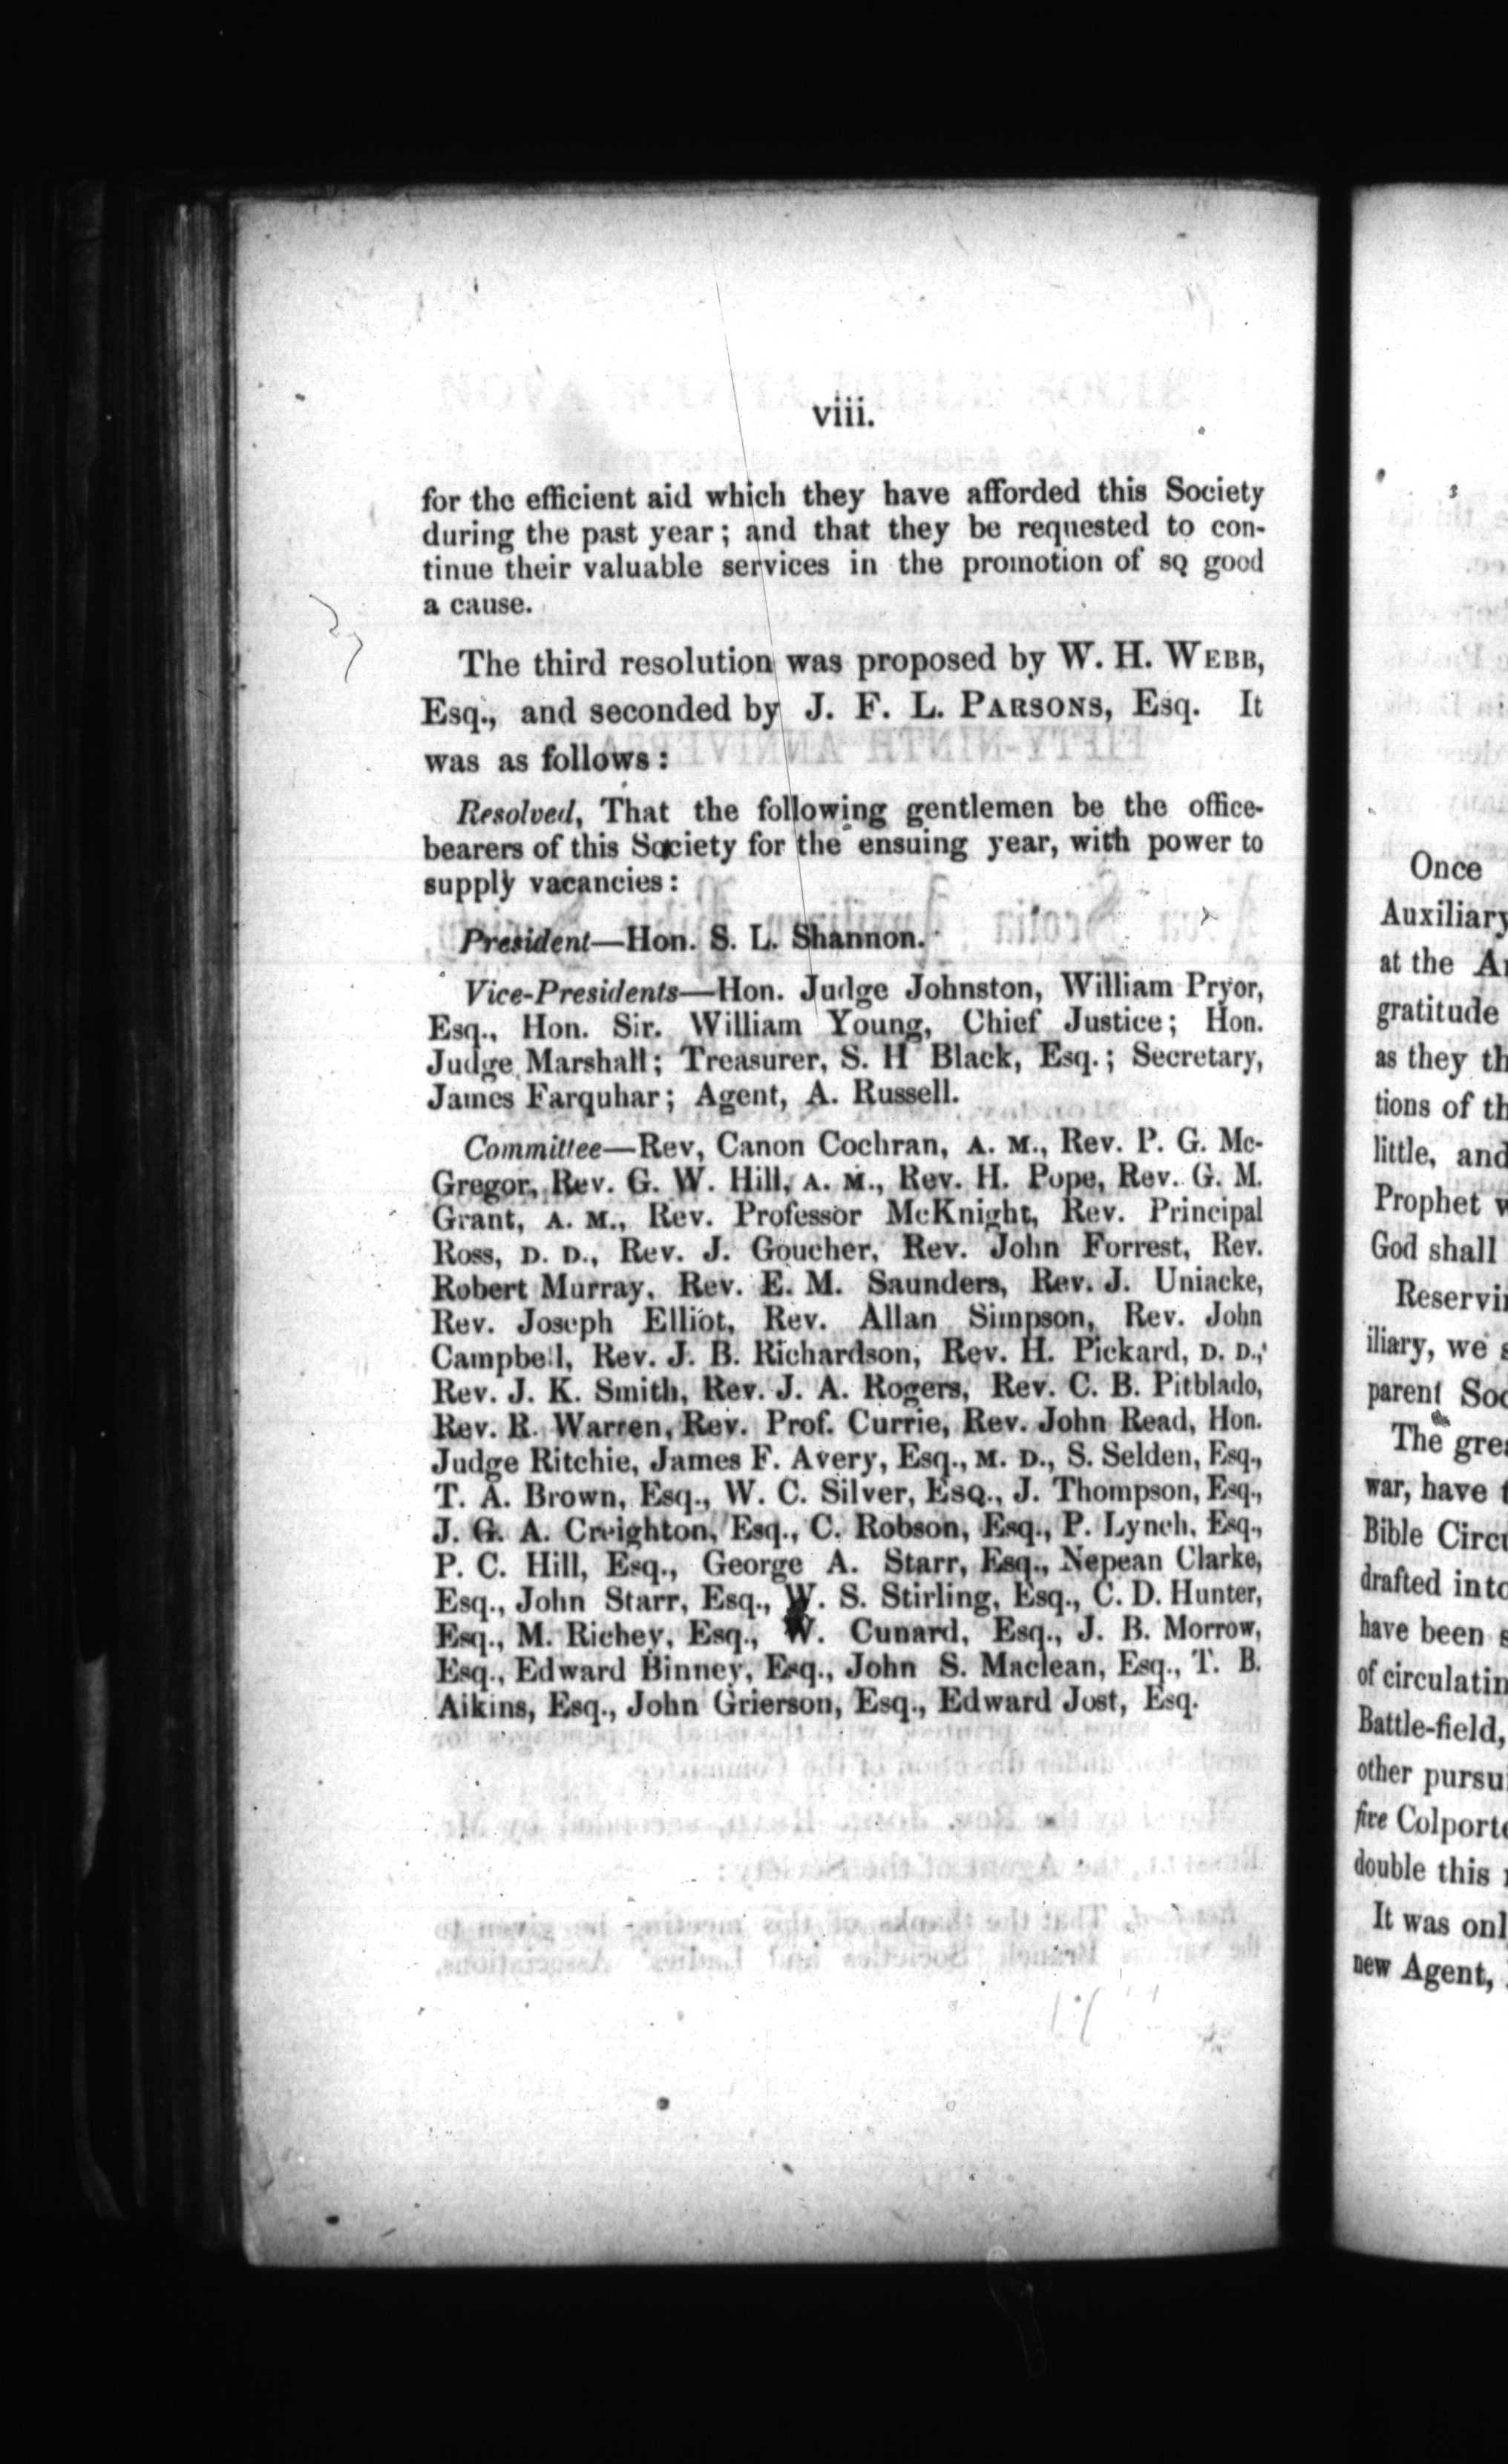 viii.
for the efficient aid which they have afforded this Society
during the past year; and that they be requested to con-
tinue their valuable services in the promotion of so good
a cause.
The third resolution was proposed by W. H. WEBB,
Esq., and seconded by J. F. L. PARSONS, Esq. It
was as follows:
Resolved, That the following gentlemen be the office-
bearers of this Society for the ensuing year, with power to
supply vacancies:
President—Hon. S. L. Shannon.
Vice-Presidents—Hon. Judge Johnston, William Pryor,
Esq., Hon. Sir. William Young, Chief Justice; Hon.
Judge Marshall; Treasurer, S. H Black, Esq.; Secretary,
James Farquhar; Agent, A. Russell.
Committee—Rev, Canon Cochran, A. M., Rev. P. G. Mc-
Gregor, Rev. G. W. Hill, A. M., Rev. H. Pope, Rev. G. M.
Grant, A. M., Rev. Professor McKnight, Rev. Principal
Ross, D. D., Rev. J. Goucher, Rev. John Forrest, Rev.
Robert Murray, Rev. E. M. Saunders, Rev. J. Uniacke,
Rev. Joseph Elliot, Rev. Allan Simpson, Rev. John
Campbell, Rev. J. B. Richardson, Rev. H. Pickard, D. D.,
Rev. J. K. Smith, Rev. J. A. Rogers, Rev. C. B. Pitblado,
Rev. R. Warren, Rev. Prof. Currie, Rev. John Read, Hon.
Judge Ritchie, James F. Avery, Esq., M. D., S. Selden, Esq.,
T. A. Brown, Esq., W. C. Silver, Esq., J. Thompson, Esq.,
J. G. A. Creighton, Esq., C. Robson, Esq., P. Lynch, Esq.,
P. C. Hill, Esq., George A. Starr, Esq., Nepean Clarke,
Esq., John Starr, Esq., W. S. Stirling, Esq., C. D. Hunter,
Esq., M. Richey, Esq., W. Cunard, Esq., J. B. Morrow,
Esq., Edward Binney, Esq., John S. Maclean, Esq., T. B.
Aikins, Esq., John Grierson, Esq., Edward Jost, Esq.
Once
Auxiliary
at the
gratitude
as they
tions of
little, and
Prophet
God shall
iliary, we
parent
The
war, have
Bible
drafted into
have been
Battle-field,
other
five
double this
It was
new Agent,